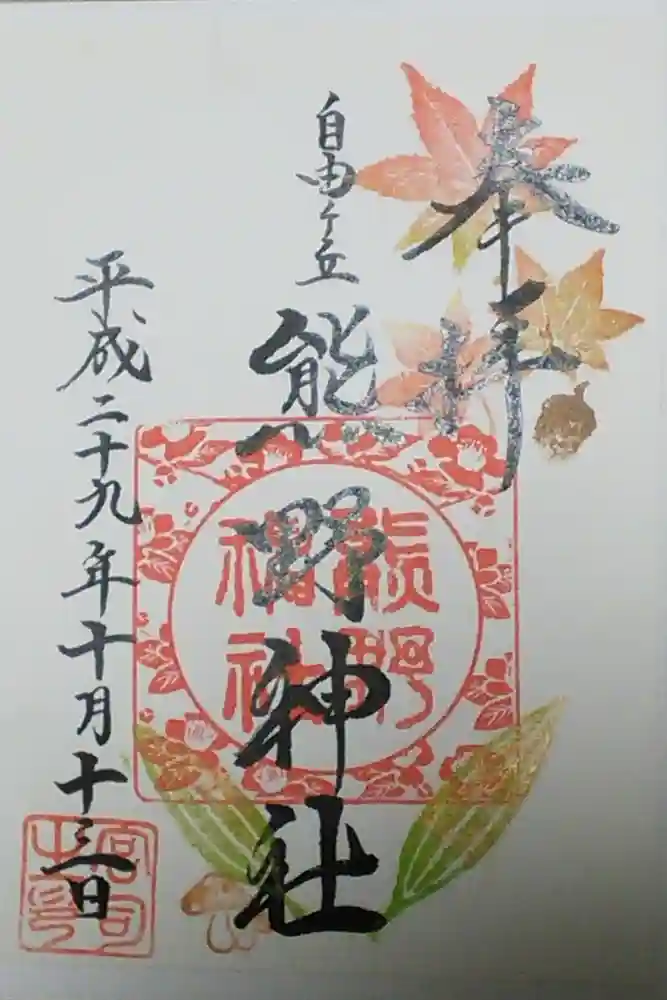 奉拝
自由ケ丘
熊野神社
熊野
神社
平成二十九年十月十三日
宮司
之印